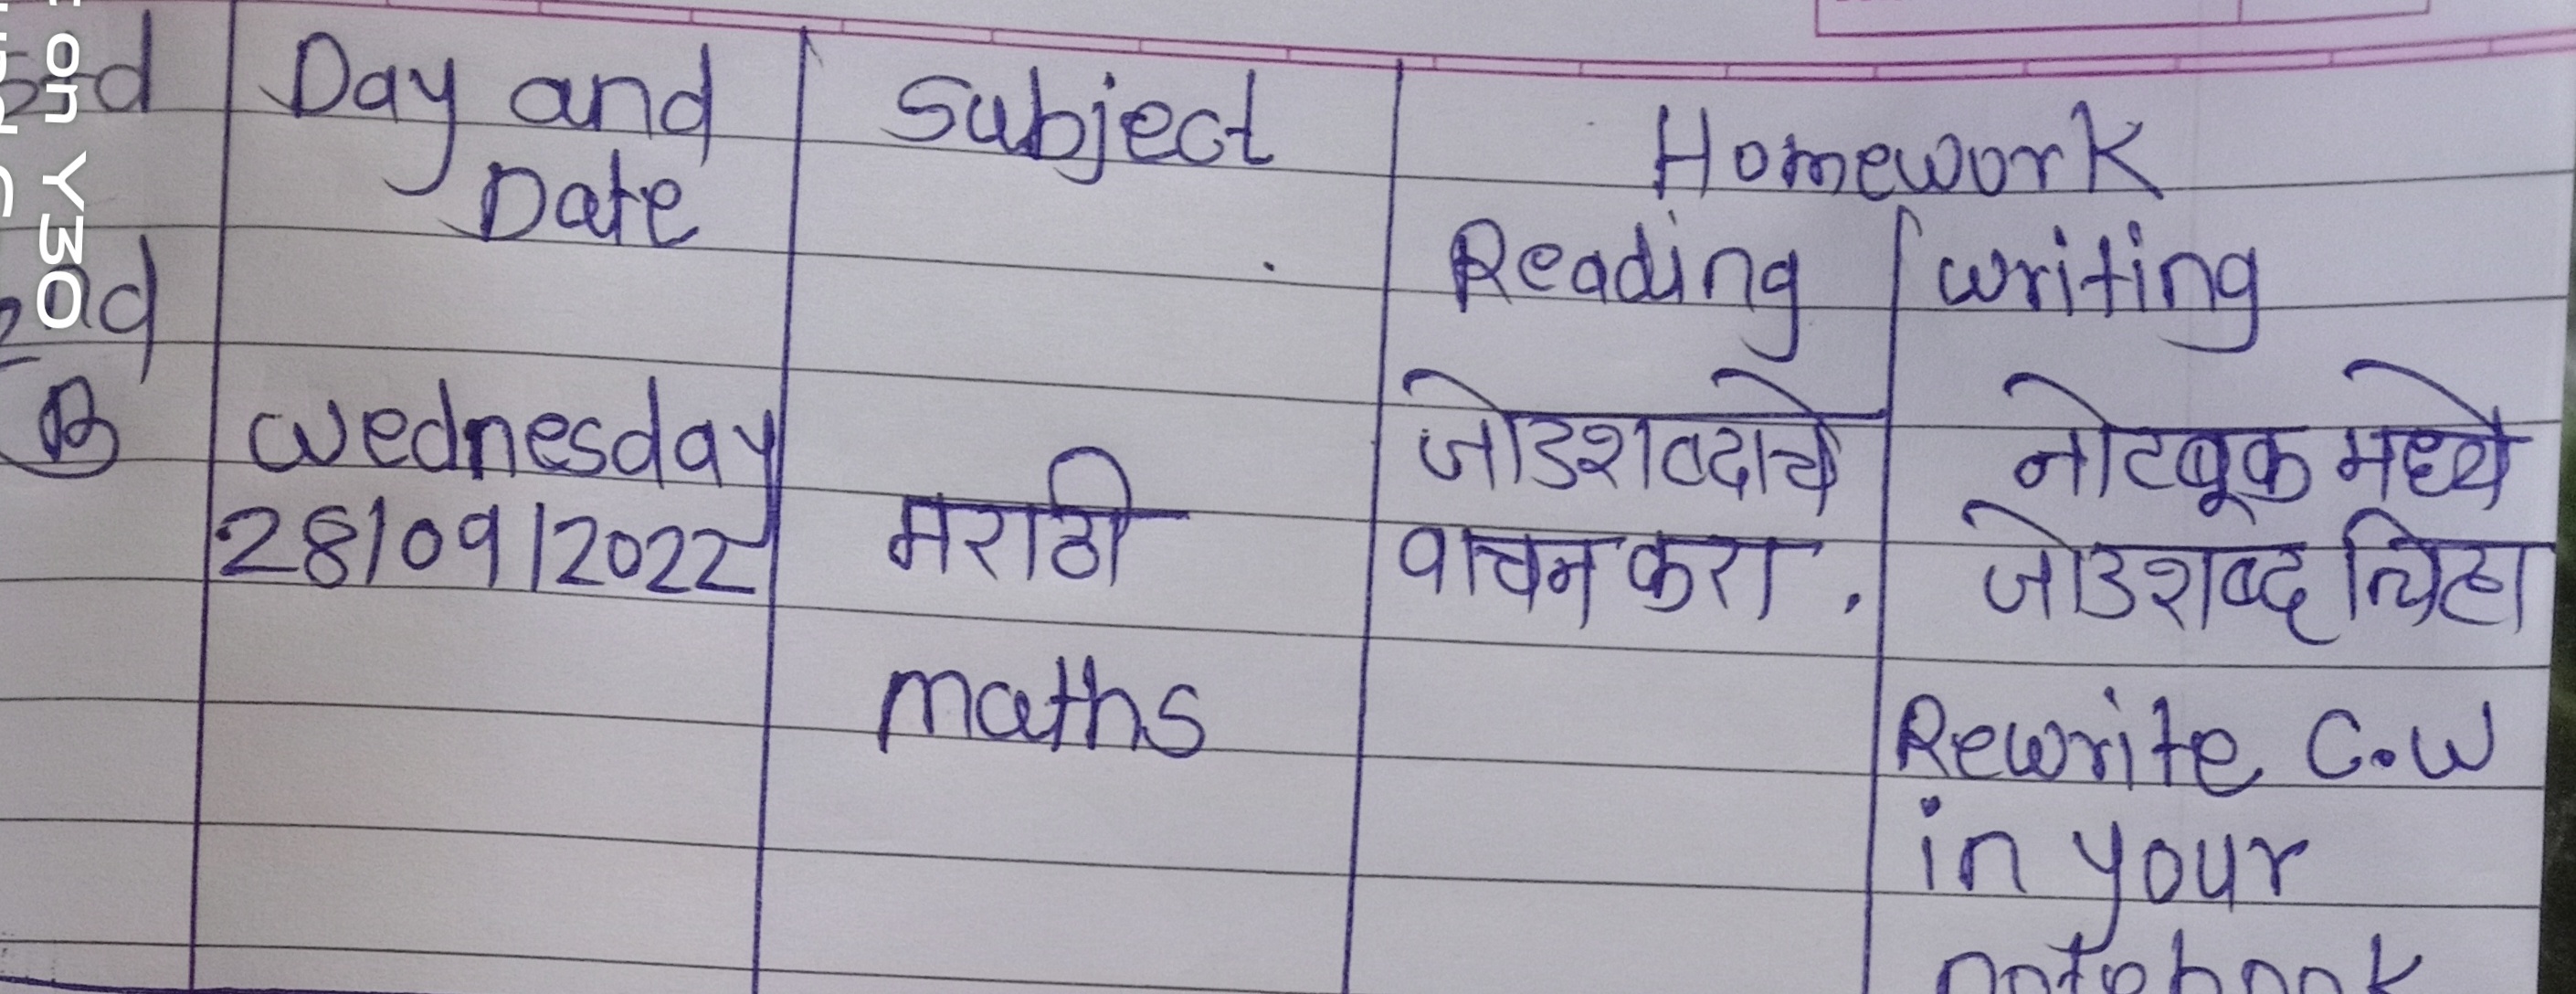 Day and Date
Subject
Homework
Reading
writing
B
Wednesday
28/09/2022
मराठी
जोडशब्दाचे
वाचन करा.
नोटबूक मध्ये
जोडशब्द लिहा
maths
Rewrite C.W
in your
notebook
on Y30